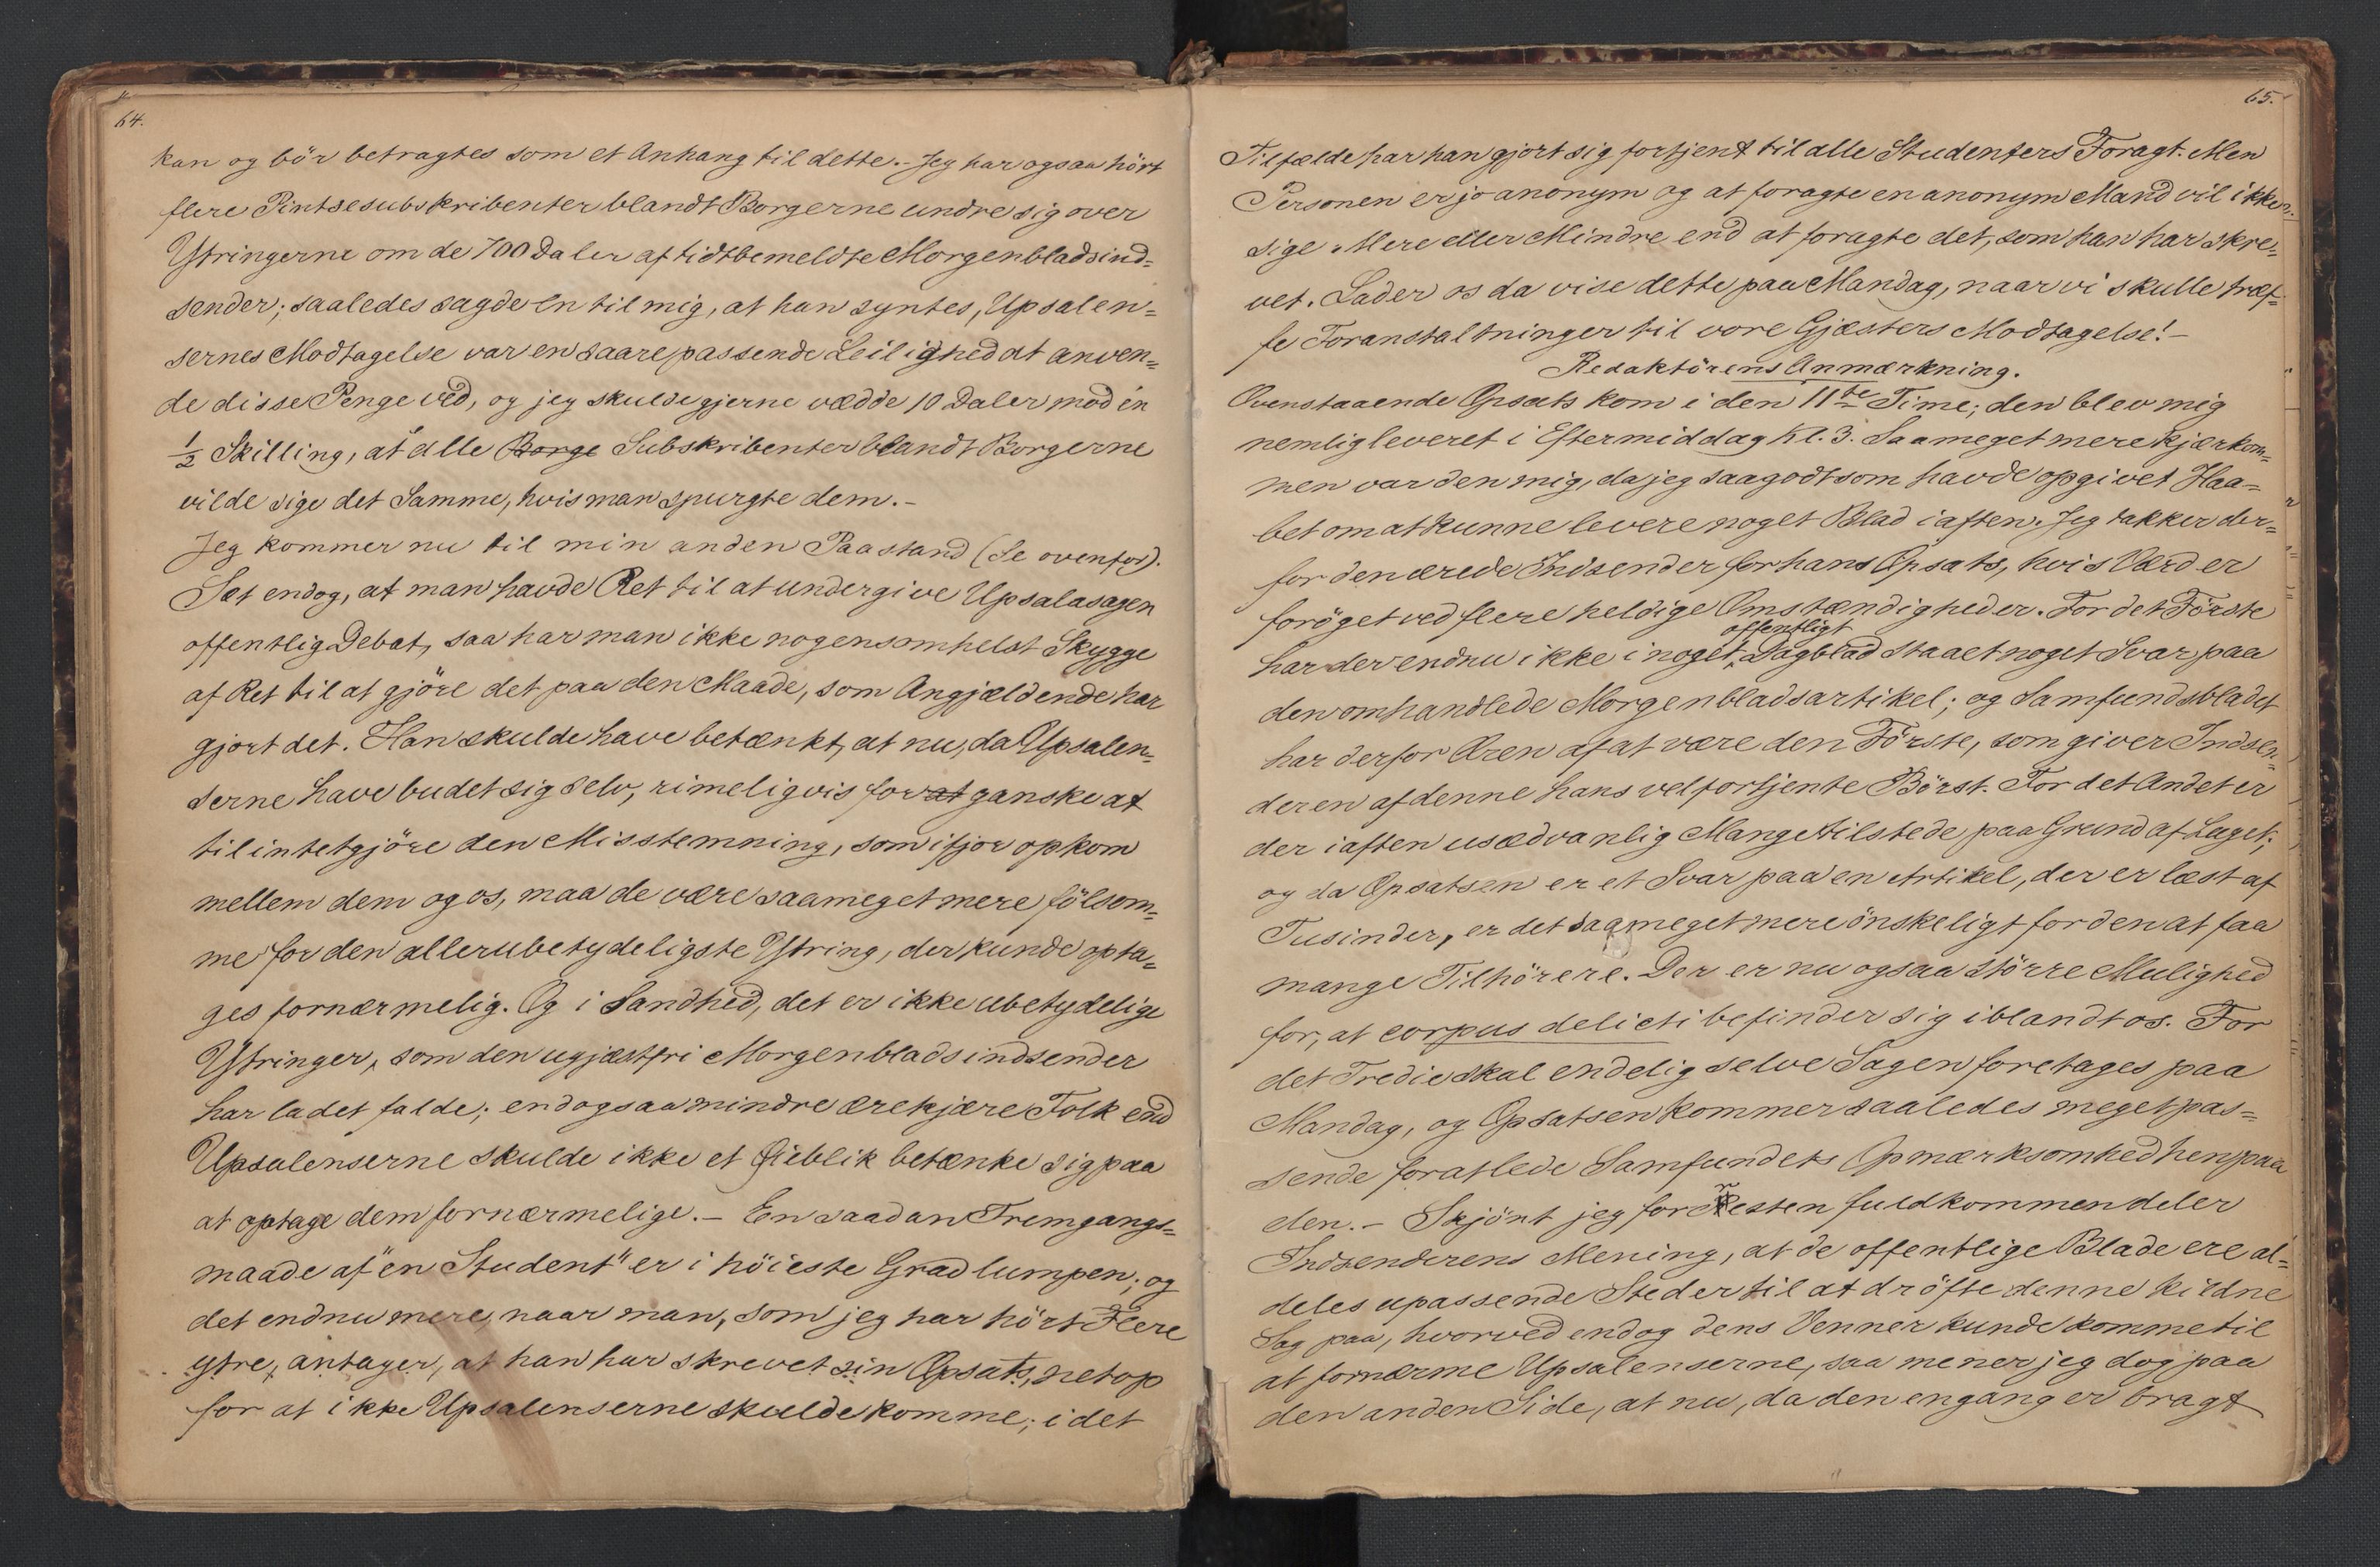 64.
kan og bör betragtes som et Anhang til dette.- Jeg har ogsaa hört
flere Pintsesubskribenter blandt Borgerne undre sig over
Ytringerne om de 700 Daler af tidtbemeldte Morgenbladsind=
sender; saaledes sagde En til mig, at han syntes, Upsalen=
sernes Modtagelse var en saare passende Leilighed at anven=
de disse Penge ved, og jeg skulde gjerne vædde 10 Daler mod én
½ Skilling, at alle Borge Subskribenter blandt Borgerne
vilde sige det Samme, hvis man spurgte dem.-
Jeg kommer nu til min anden Paastand (Se ovenfor).
Sæt endog, at man havde Ret til at undergive Upsalasagen
offentlig Debat, saa har man ikke nogensomhelst Skygge
af Ret til at gjöre det paa den Maade, som Angjældende har
gjort det. Han skulde have betænkt, at nu, da Upsalen=
serne have budet sig selv, rimeligvis for at ganske at
tilintetgjöre den Misstemning, som ifjor opkom
mellem dem og os, maa de være saameget mere fölsom=
me for den allerubetydeligste Ytring, der kunde opta=
ges fornærmelig. Og i Sandhed, det er ikke ubetydelige
Ytringer, som den ugjæstfri Morgenbladsindsender
har ladet falde; endogsaa mindre ærekjære Folk end
Upsalenserne skulde ikke et Øieblik betænke sig paa
at optage dem fornærmelige.- En saadan Fremgangs=
maade af "en Student" er i höieste Grad lumpen; og
det endnu mere, naar man, som jeg har hört Flere
ytre, antager, at han har skrevet sin Opsats, netop
for at ikke Upsalenserne skulde komme; i det
65.
Tilfælde har han gjort sig fortjent til alle Studenters Foragt. Men
Personen er jo anonym og at foragte en anonym Mand vil ikke
sige Mere eller Mindre end at foragte det, som han har skre=
vet. Lader os da vise dette paa Mandag, naar vi skulle træf=
fe Foranstaltninger til vore Gjæsters Modtagelse!-
Redaktörens Anmærkning.
Ovenstaaende Opsats kom i den 11te Time; den blev mig
nemlig leveret i Eftermiddag Kl. 3. Saameget mere kjærkom=
men var den mig, da jeg saagodtsom havde opgivet Haa=
bet om at kunne levere noget Blad iaften. Jeg takker der=
for den ærede Indsender for hans Opsats, hvis Værd er
foröget ved flere heldige Omstændigheder. For det Förste
offentligt
har der endnu ikke i noget Dagblad staaet noget Svar paa
den omhandlede Morgenbladsartikel; og Samfundsbladet
har derfor Æren af at være den Förste, som giver Indsen=
deren af denne hans velfortjente Börst. For det Andet er
der iaften usædvanlig Mange tilstede paa Grund af Laget;
og da Opsatsen er et Svar paa en Artikel, der er læst af
Tusinder, er det saameget mere önskeligt for den at faa
mange Tilhörere. Der er nu ogsaa större Mulighed
for, at corpus delicti befinder sig iblandt os. For
det Tredie skal endelig selve Sagen foretages paa
Mandag, og Opsatsen kommer saaledes meget pas=
sende for at lede Samfundets Opmærksomhed hen paa
den.- Skjönt jeg forresten fuldkommen deler
Indsenderens Mening, at de offentlige Blade ere al=
deles upassende Steder til at dröfte denne kildne
Sag paa, hvorved endog dens Venner kunde komme til
at fornærme Upsalenserne, saa mener jeg dog paa
den anden Side, at nu, da den engang er bragt